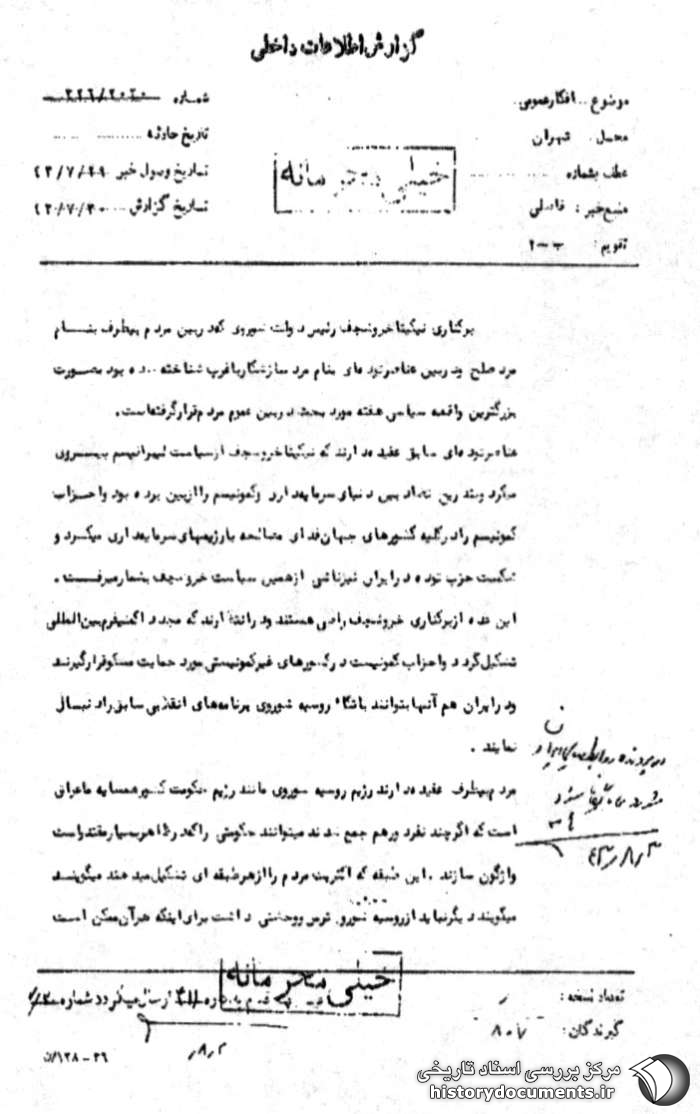 گزارش اطلاعات داخلی
موضوع ... افکار عمومی
شماره ۲۲۶/۲۰۲۰
محل تهران
تاریخ حادثه
عطف بشماره
تاریخ وصول خبر ۴۳/۷/۲۹
خیلی محرمانه
منبع خبر : فاضلی
تاریخ گزارش ۴۳/۷/۳۰
تقویم : ب-۲
برکناری نیکیتا خروشچف رئیس دولت شوروی که در بین مردم بیطرف بنام
مرد صلح و در بین عناصر توده‌ای بنام مرد سازشکار با غرب شناخته شده بود بصورت
بزرگترین واقعه سیاسی هفته مورد بحث در بین عموم مردم قرار گرفته است .
عناصر توده‌ای سابق عقیده دارند که نیکیتا خروشچف از سیاست پیروی
میکرد و بین دنیای سرمایه‌داری و کمونیسم را از بین برده بود و احزاب
کمونیسم را در کلیه کشورهای جهان فدای مصالحه با رژیمهای سرمایه‌داری میکرد و
شکست حزب توده در ایران نیز ناشی از همین سیاست خروشچف بشمار میرفت .
این عده از برکناری خروشچف راضی هستند و در انتظارند که مجددا بین‌المللی
تشکیل گردد و احزاب کمونیست در کشورهای غیر کمونیستی مورد حمایت مسکو قرار گیرند
و در ایران هم آنها بتوانند باتکاء روسیه شوروی برنامه‌های انقلابی سابق را دنبال
نمایند .
مردم بیطرف عقیده دارند رژیم روسیه شوروی مانند رژیم حکومت کشور همسایه ما عراق
است که اگر چند نفر دور هم جمع شدند میتوانند حکومتی را که در ظاهر بسیار مقتدر است
واژگون سازند . این طبقه که اکثریت مردم را از هر طبقه ای تشکیل میدهند میگویند
میگویند دیگر نباید از روسیه شوروی ترس و وحشتی داشت برای اینکه هر آن ممکن است
در پرونده روابط ایران و
شوروی
۴۳/۸/۳
خیلی محرمانه
تعداد نسخه :
ارسال میگردد شماره
گیرندگان : ۸۰۷
۸/۲
۳۶ - ۱۲۸/ن
مرکز بررسی اسناد تاریخی
historydocuments.ir